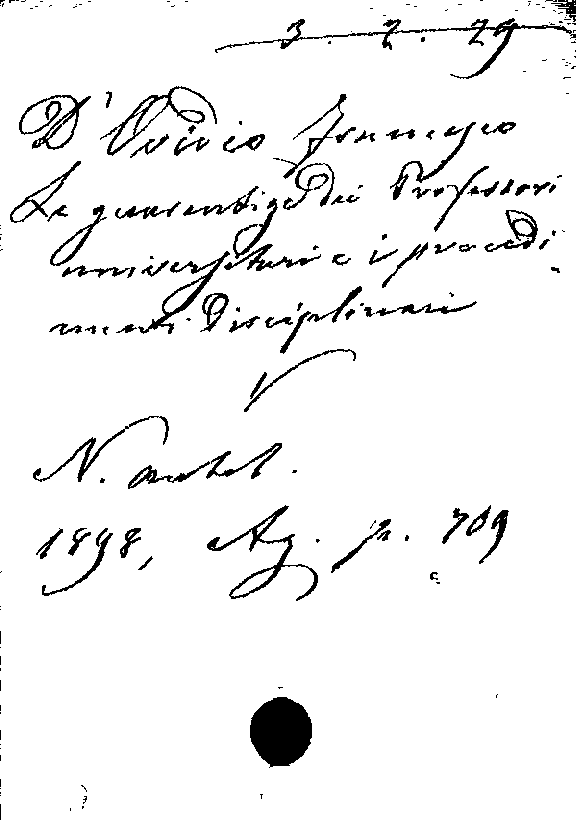 3. 2. 29
D'Ovidio Francesco
Le guarentige dei Professori
universitari e i procedi-
menti disciplinari
V
N. Antol.
1898, Ag. p. 709